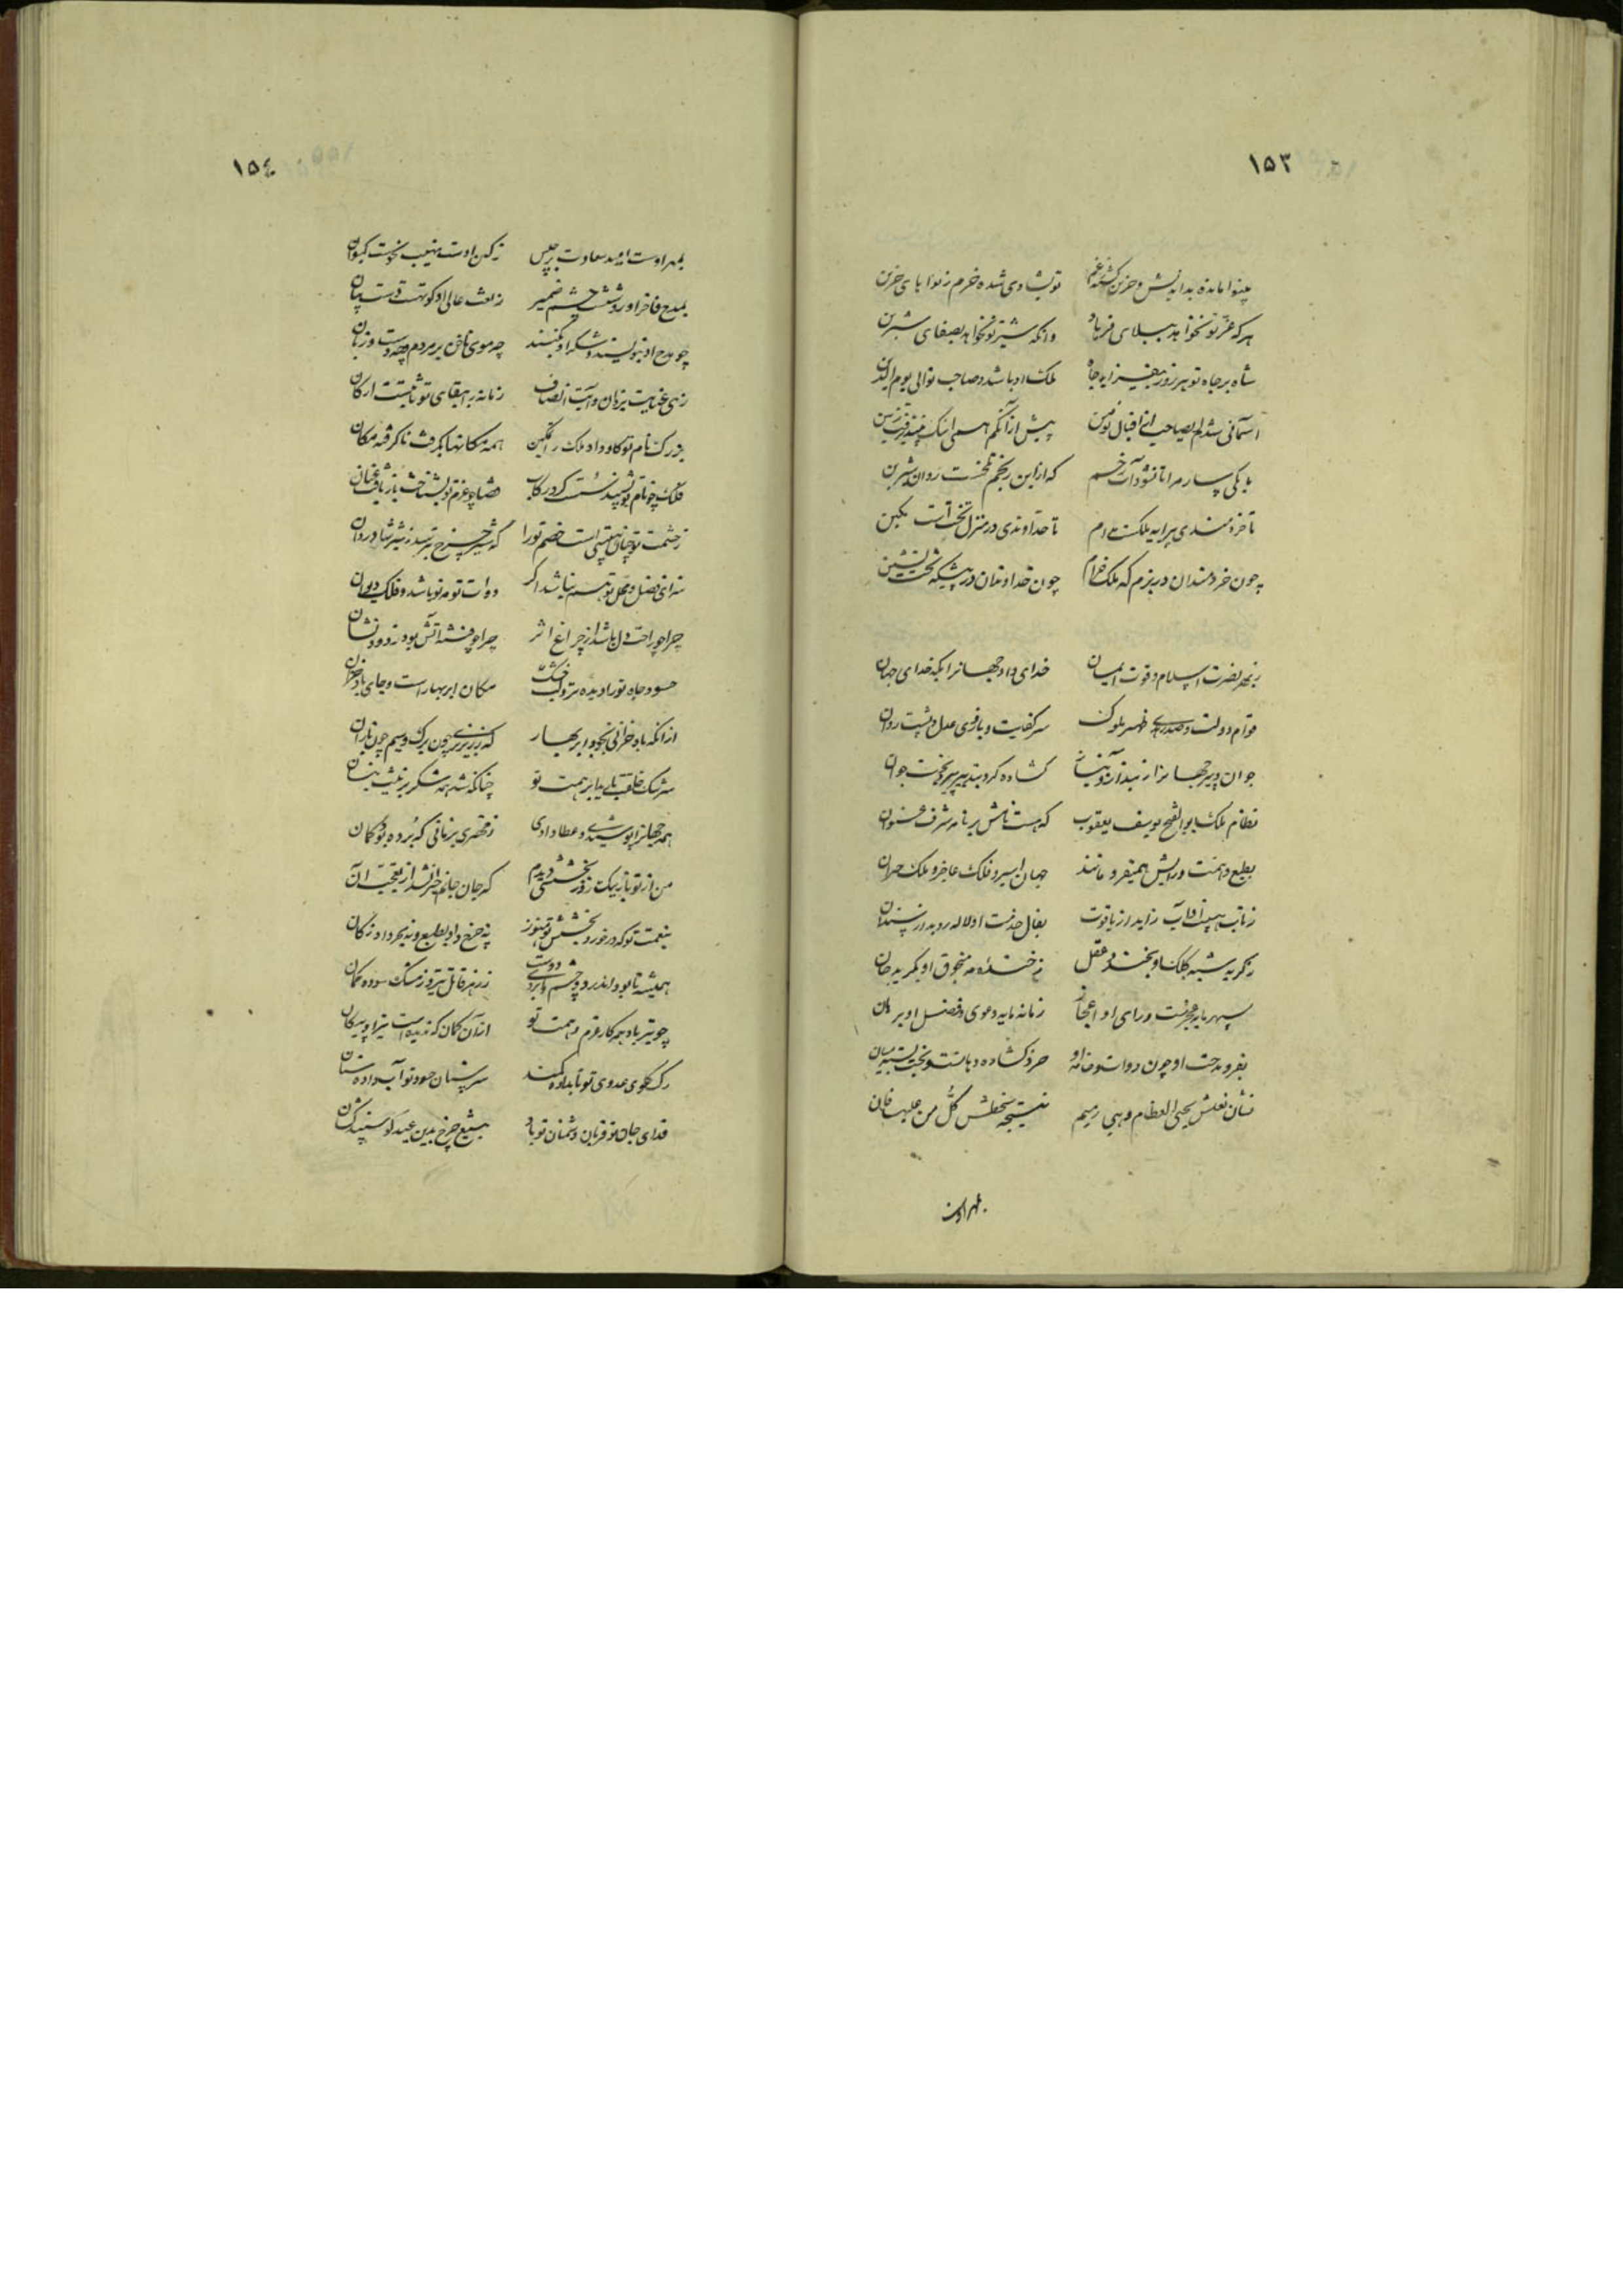 ١٥٣
بینوا مانده بداندیش و حزین گشته ز غم تو بشادی شده خرم ز نوا بای حزین
هر که عز تو نخواهد ببلای فرهاد وانکه شیرین تو نخواهد بصفای شیرین
شاه بر جاه تو هر روز بیفزاید جاه ملک او باشد و صاحب توالی یوم الدین
آسمانی شدم ایصاحب از اقبال زمین پیش از آنکم
که از این رنجم
تا خردمندی پیرایه ملکست مدام تا خداوندی در منزل تختست مکین
چون خردمندان در بزم که ملک خرام چون خداوندان در پیشگه تخت نشین
ز بهر نصرت اسلام و قوت ایمان خدای داد جهانرا یکه خدای جهان
قوام دولت و صدر ظهیر ملوک سر کفایت و بازوی عدل و پشت روان
جوان و پیر جهانرا کشاده کرد بتدبیر پیر و بخت جوان
نظام ملک ابوالفتح یوسف یعقوب که هست نامش بر نامه شرف عنوان
بطبع و همت و رایش همیفرو مانند جهان اسیر و فلک عاجز و ملک حیران
زتاب هیبت او آب زاید از یاقوت بفال خدمت او لاله روید از سندان
ز گریه شبه کلک او بخندد عقل ز خنده مه منجوق او بگرید جان
سپهر مایه معجز نمت و رای او اعجاز زمانه مایه دعوی و فضل او برهان
بفر مدحت او چون دوات و خامه او خرد کشاده دهانست و بخت بسته میان
نشان نعلش یحیی العظام و هی رمیم نتیجه سخطش کل من علیها فان
بمهر اوست
١٥٤
بمهر اوست امید سعادت برجیس ز کین اوست نهیب نحوست کیوان
بمدح فاخر او روشنست چشم ضمیر ز نعت عالی او کوتهست دست بیان
چو مدح او بنویسند و شکر او گویند چه موی ناخن بر مردم و چه دست و زبان
زهی عنایت یزدان و آیت انصاف زمانه را ببقای تو ثابتست ارکان
بزرک نام تو کاو داد ملک را تمکین همه مکانها بکرفت ناگرفته مکان
فلک چو نام تو بشنید سست کرد رکاب قضا چو عزم تو بشناخت باز تافت عنان
ز خشمت تو چنان هیبتی است خصم تو را که شیر چرخ بترسد ز شیر شادروان
سزای فضل و محل تو باشد اگر دوات تو مه نو باشد و فلک دیوان
چرا چو راحت دل باشد از چراغ اثر چرا چو فتنه آتش بود ز دود نشان
حسود جاه تو را دیده تر و لب خشک مکان ابر بهار است و جای باد خزان
از آنکه باد خزانی نجود و ابر بهار که زر نریزی چون برگ و سیم چون باران
سرشک خلقت باید ابر همت تو چنانکه شد همه شکر بزیشه بنیان
همه جهانرا پوشیدی و عطا دادی
من از تو باز بیک روز بخششی دیدم که جان جانم حیران شد از تعجب آن
بنعمت تو که در خورد بخشش تو هنوز نه چرخ داد بطبع و نه بحر داد نه کان
همیشه تا بود اندر دو چشم و ابروی دوست ز زهر قاتل تیر و ز مشک سوده کمان
چو تیر باد همه کار عزم و همت تو از آن کمان که ندیده است تیر او پیکان
رگ گلوی عدوی تو تابداده کمند سر سنان حسود تو آب داده سنان
فدای جان تو قربان دشمنان تو باد بتیغ چرخ بدین عید گوسپند کشان